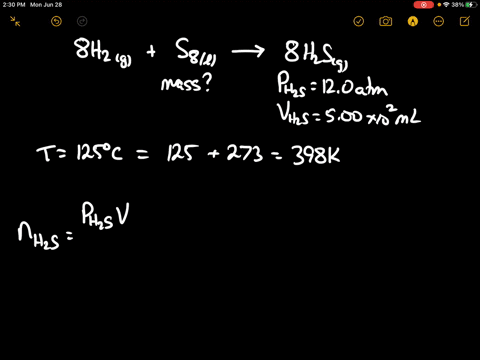 2:30 PM Mon Jun 28
38%
8H₂(g) + S₈(l) → 8H₂S(g)
mass?
P_H₂S = 12.0 atm
V_H₂S = 5.00 x10² mL
T = 125°C = 125 + 273 = 398K
n_H₂S = P_H₂S V